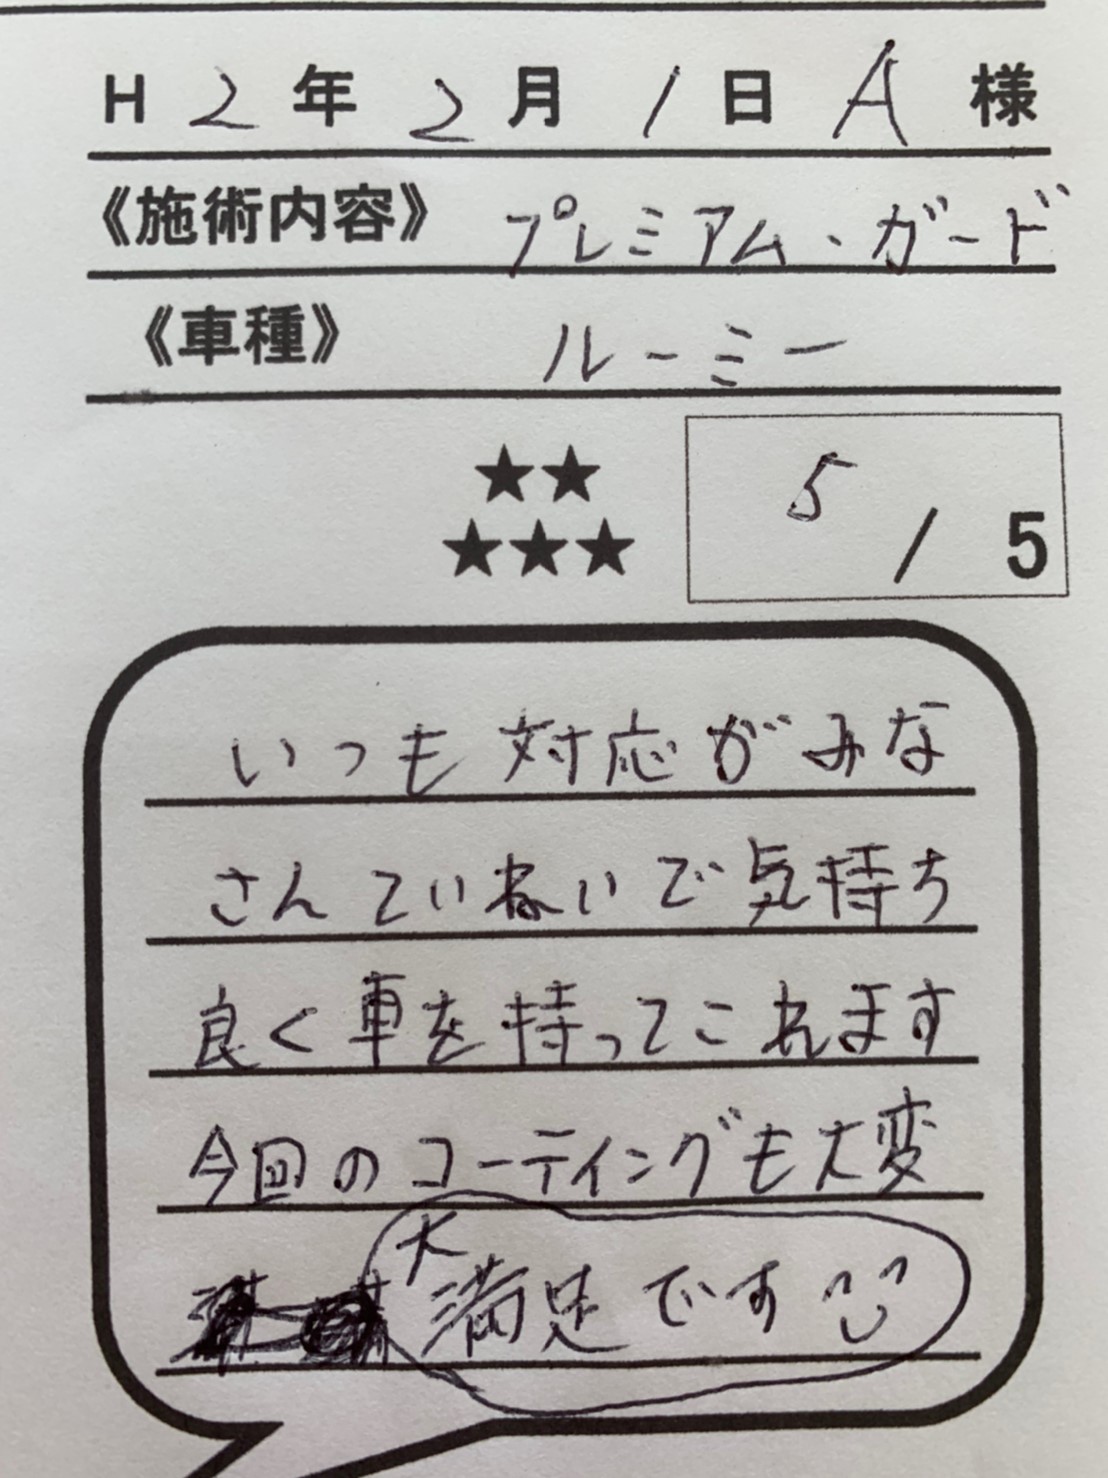 H 2 年 2 月 1 日 A 様
《施術内容》 プレミアム・ガード
《車種》 ルーミー
★★
★★★
5 / 5
いつも対応がみな
さんていねいで気持ち
良く車を持ってこれます
今回のコーティングも大変
大満足です